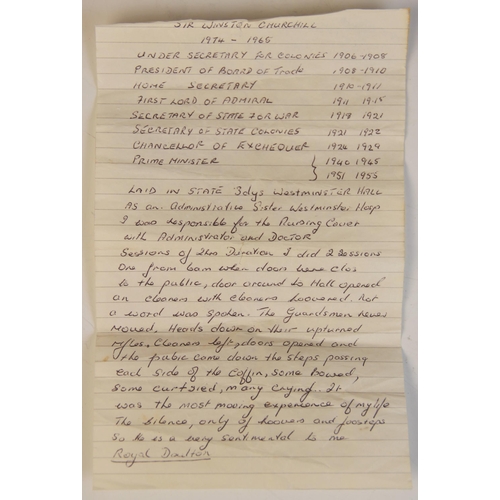 SIR WINSTON CHURCHILL
1974 - 1965
UNDER SECRETARY FOR COLONIES 1906-1908
PRESIDENT OF BOARD OF Track 1908-1910
HOME SECRETARY 1910-1911
FIRST LORD OF ADMIRAL 1911 1915
SECRETARY OF STATE FOR WAR 1918 1921
SECRETARY OF STATE COLONIES 1921 1922
CHANCELLOR OF EXCHEQUER 1924 1929
PRIME MINISTER } 1940 1945
} 1951 1955
LAID IN STATE 3dys WESTMINSTER HALL
As an Administrative Sister Westminster Hosp
I was responsible for the Nursing Cover
with Administrator and DOCTOR
Sessions of 2hrs Duration I did 2 Sessions
One from 6am when doors were clos
to the public, door around to Hall opened
an cleaners with cleaners hoovered, not
a word was spoken. The Guardsmen never
moved. Heads down on their upturned
rifles. Cleaners left, doors opened and
the public come down the steps passing
each side of the coffin, some bowed,
some curtsied, many crying. It
was the most moving experience of my life
The silence, only of hoovers and footsteps
So He is a very sentimental to me
Royal Doulton